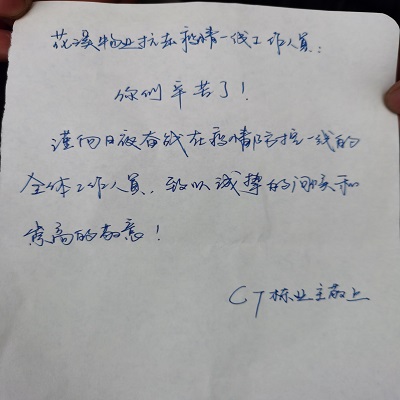 花溪物业抗击疫情一线工作人员:
你们辛苦了!
谨向日夜奋战在疫情防控一线的
全体工作人员,致以诚挚的问候和
崇高的敬意!
C7栋业主敬上